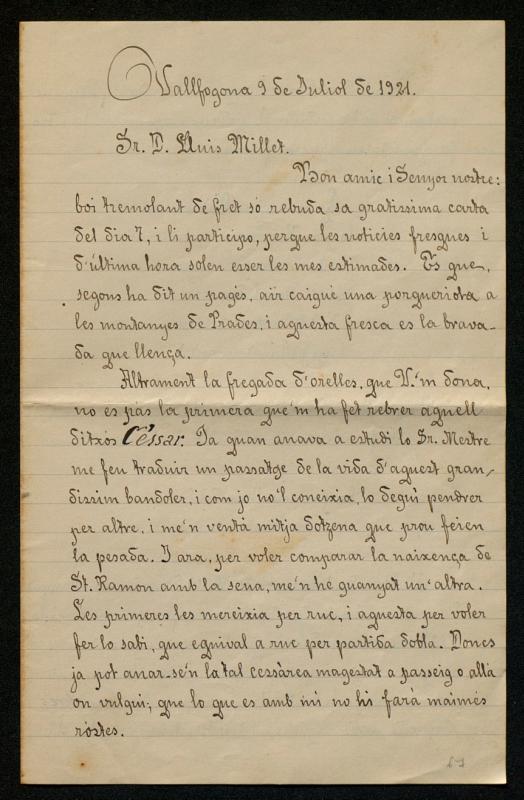 Vallfogona 9 de Juliol de 1921.
Sr. D. Lluis Millet.
Bon amic i Senyor nostre:
boi tremolant de fret só rebuda sa gratissima carta
del dia 7, i li participo, perque les noticies fresques i
d'última hora solen esser les mes estimades. Es que,
segons ha dit un pagés, air caigué una porgueriota a
les montanyes de Prades, i aquesta fresca es la brava-
da que llença.
Altrament la fregada d'orelles, que V.'m dona,
no es pas la primera que'm ha fet rebrer aquell
ditxós Céssar. Ja quan anava a estudi lo Sr. Mestre
me feu traduir un passatge de la vida d'aquest gran-
dissim bandoler, i com jo no'l coneixia, lo degui pendrer
per altre, i me'n ventá mitja dotzena que prou feien
la pesada. I ara, per voler comparar la naixença de
St. Ramon amb la seua, me'n he guanyat un'altra.
Les primeres les mereixia per ruc, i aquesta per voler
fer lo sabi, que equival a ruc per partida dobla. Doncs
ja pot anar-se'n la tal cessàrea magestat a passeig o allá
on vulgui; que lo que es amb mi no hi fará maimés
róstes.